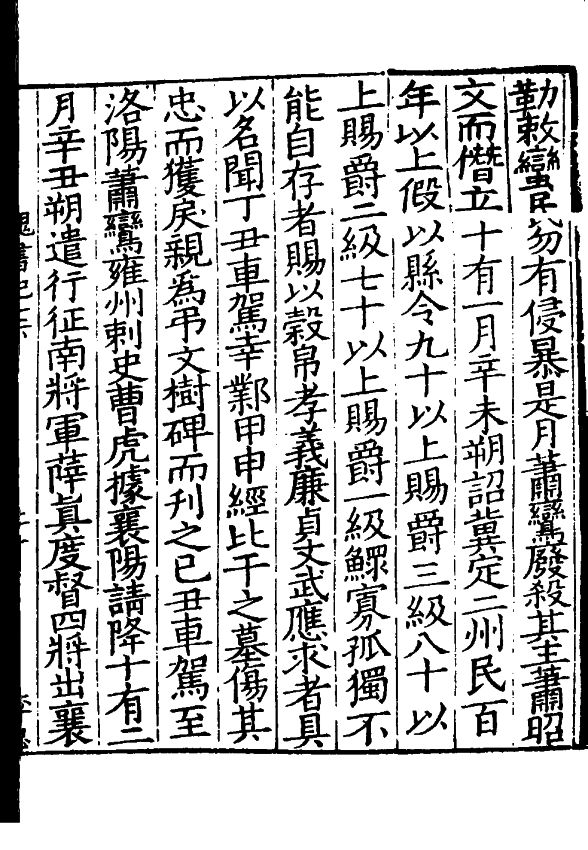 勒敕蠻民勿有侵暴是月蕭鸞廢殺其主蕭昭
文而僭立十有一月辛未朔詔冀定二州民百
年以上假以縣令九十以上賜爵三級八十以
上賜爵二級七十以上賜爵一級鰥寡孤獨不
能自存者賜以穀帛孝義廉貞文武應求者具
以名聞丁丑車駕幸鄴甲申經比干之墓傷其
忠而獲戾親為弔文樹碑而刊之已丑車駕至
洛陽蕭鸞雍州刺史曹虎據襄陽請降十有二
月辛丑朔遣行征南將軍薛真度督四將出襄